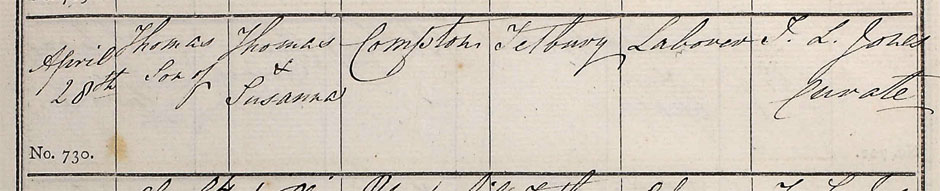 April 28th
Thomas Son of
Thomas & Susanna
Compton
Tetbury
Laborer
T. L. Jones Curate
No. 730.